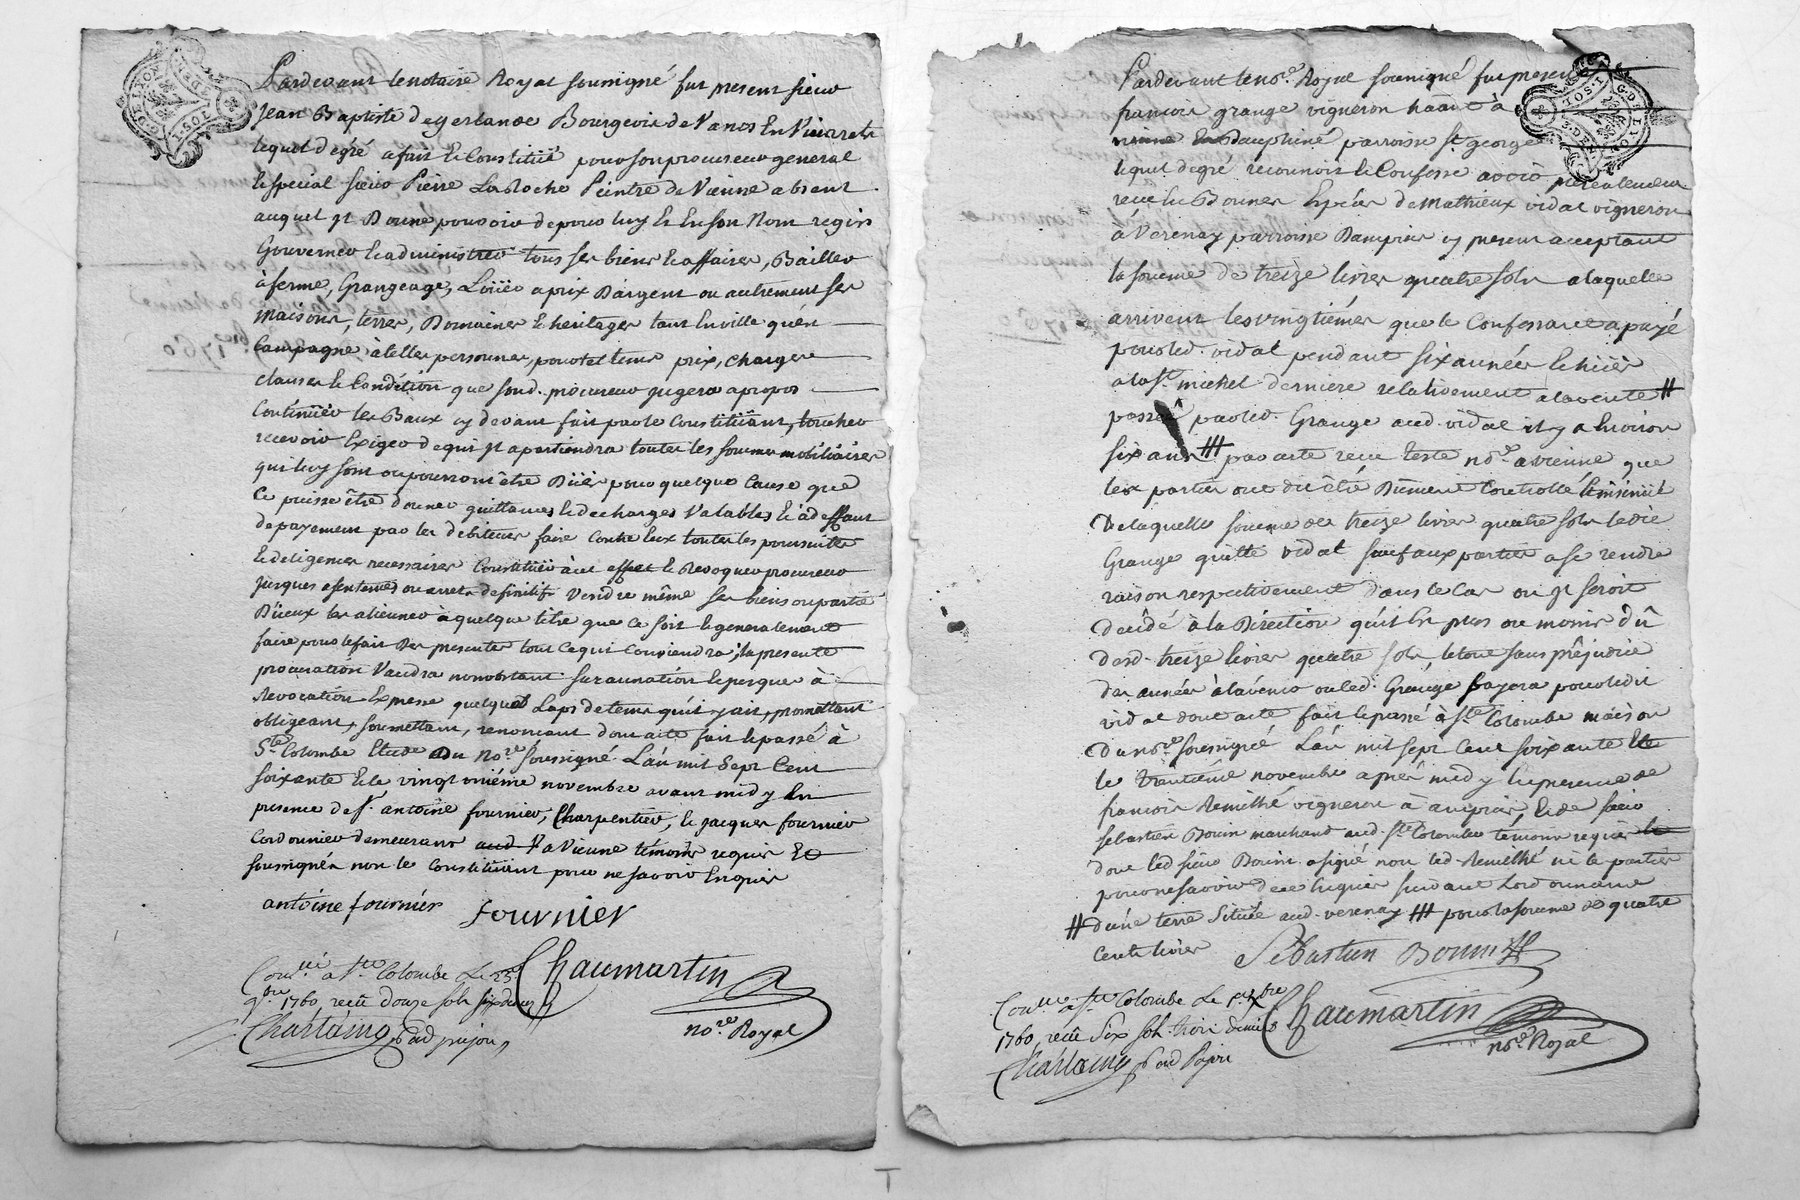 Pardevant le notaire Royal soussigné fut present sieur
Jean Baptiste Degerlande Bourgeois de Vancs En Vivarets
lequel de gré a fait & Constitüé pour son procureur general
& special sieur Pierre Laroche Peintre de Vienne absent
auquel il Donne pouvoir de pour luy & En son Nom regir
Gouverner & administrer tous ses biens & affaires, Bailler
à ferme, Grangeage, Loüer a prix D'argent ou autrement ses
maisons, terres, Domaines & heritages tant En ville qu'en
Campagne, à telles personnes, pour tel tems prix, charges
clauses & Condition que sond. procureur jugera a propos
Continüer les Baux cy devant fait par le Constitüant, toucher
recevoir Exiger de qui il apartiendra toutes les sommes mobiliaires
qui luy sont ou pourront être Düës pour quelque Cause que
Ce puisse être donner quittances & decharges Valables & à deffaut
de payement par les debiteurs faire Contre Eux toutes les poursuites
& deligences necessaires Constitüer à cet effet & Revoquer procureur
jusques a sentences ou arrets definitifs Vendre même ses biens ou partie
D'iceux les aliener à quelque titre que Ce soit & generalement
faire pour le fait Des presentes tout Ce qui Conviendra, la presente
procuration Vaudra nonobstant surannation & jusques à
Revocation Expresse quelque Laps de tems qu'il y ait, promettant
obligeant, soumettant, renoncant dont acte fait & passé à
Ste Colombe Etude Du Nore soussigné L'an mil sept Cent
soixante & le vingt uniéme novembre avant midy En
presence de sr antoine fournier, Charpentier, & jacques fournier
Cordonnier demeurans a Vienne témoins requis &
soussignés non le Constitüant pour ne savoir Enquis
antoine fournier fournier
Conlé à Ste Colombe Le 23e Chaumartin
9bre 1760, recû douze sols six deniers nore Royal
Chartaing
Pardevant le nore Royal soussigné fut present
francois grange vigneron habitant à
Dauphiné parroisse St george
lequel de gré reconnoit & Confesse avoir presentement
receu & Bonnes Especes de Mathieux vidal vigneron
à Verenay parroisse Dampuis cy present acceptant
la somme de treize livres quatre sols a laquelle
arrivent les vingtiémes que le Confessant a payé
pour led. vidal pendant six années Echües
a la St michel derniere relativement a la vente #
passée par led. Grange aud. vidal il y a Environ
six ans ### par acte receu Teste nore a vienne que
les parties ont dit être Dûment Controllé & insinüé
De laquelle somme de treize livres quatre sols ledit
Grange quitte vidal sauf aux parties a se rendre
raison respectivement dans le Cas ou il seroit
decidé à la Direction qu'il Est plus ou moins dû
desd. treize livres quatre sols, le tout sans préjudice
des années à lavenir ou led. Grange payera pour ledit
vidal dont acte fait & passé à Ste Colombe maison
Du nore soussigné L'an mil sept Cent soixante &
le trantiéme novembre après midy En presence de
francois Remilhé vigneron à ampuis, & de sieur
sebastien Bouin marchand aud. Ste Colombe temoins requis
dont led sieur Bouin a signé non led. Remilhé ni le parties
pour ne savoir de ce Enquis suivant L'ordonnance
# d'une terre Située aud. verenay ### pour la somme de quatre
Cents livres Sébastien Bouin
Conlé à Ste Colombe Le Chaumartin
1760, recû Six sols trois deniers nore Royal
Chartaing